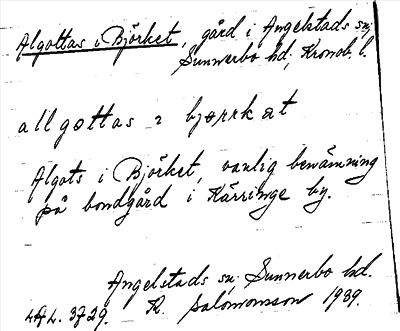 Algottas i Björket, gård i Angelstads sn;
Sunnerbo hd; Kronob. l.
allgottas i bjørrkat
Algots i Björket, vanlig benämning
på bondgård i Kärringe by.
Angelstads sn; Sunnerbo hd.
R. Salomonson 1939.